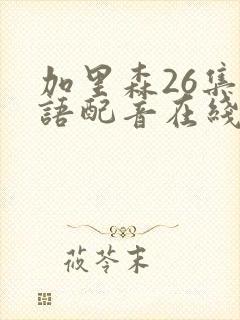 加里森26集
語配音在綫
莜苓末